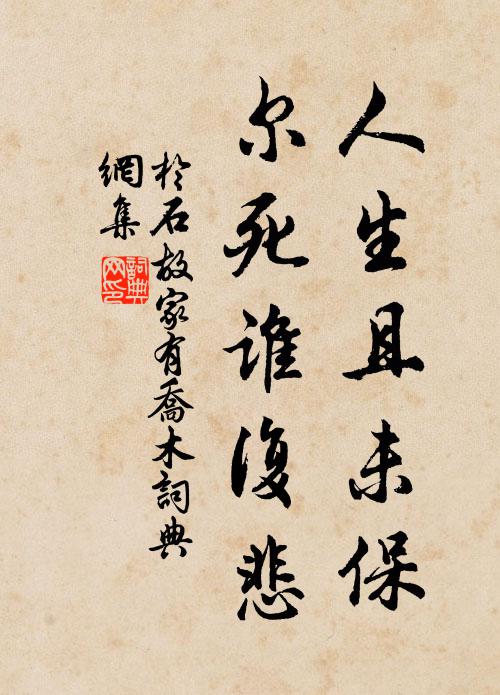 人生且未保
尔死谁復悲
於石故家有喬木詞典
網集
詞典
网印